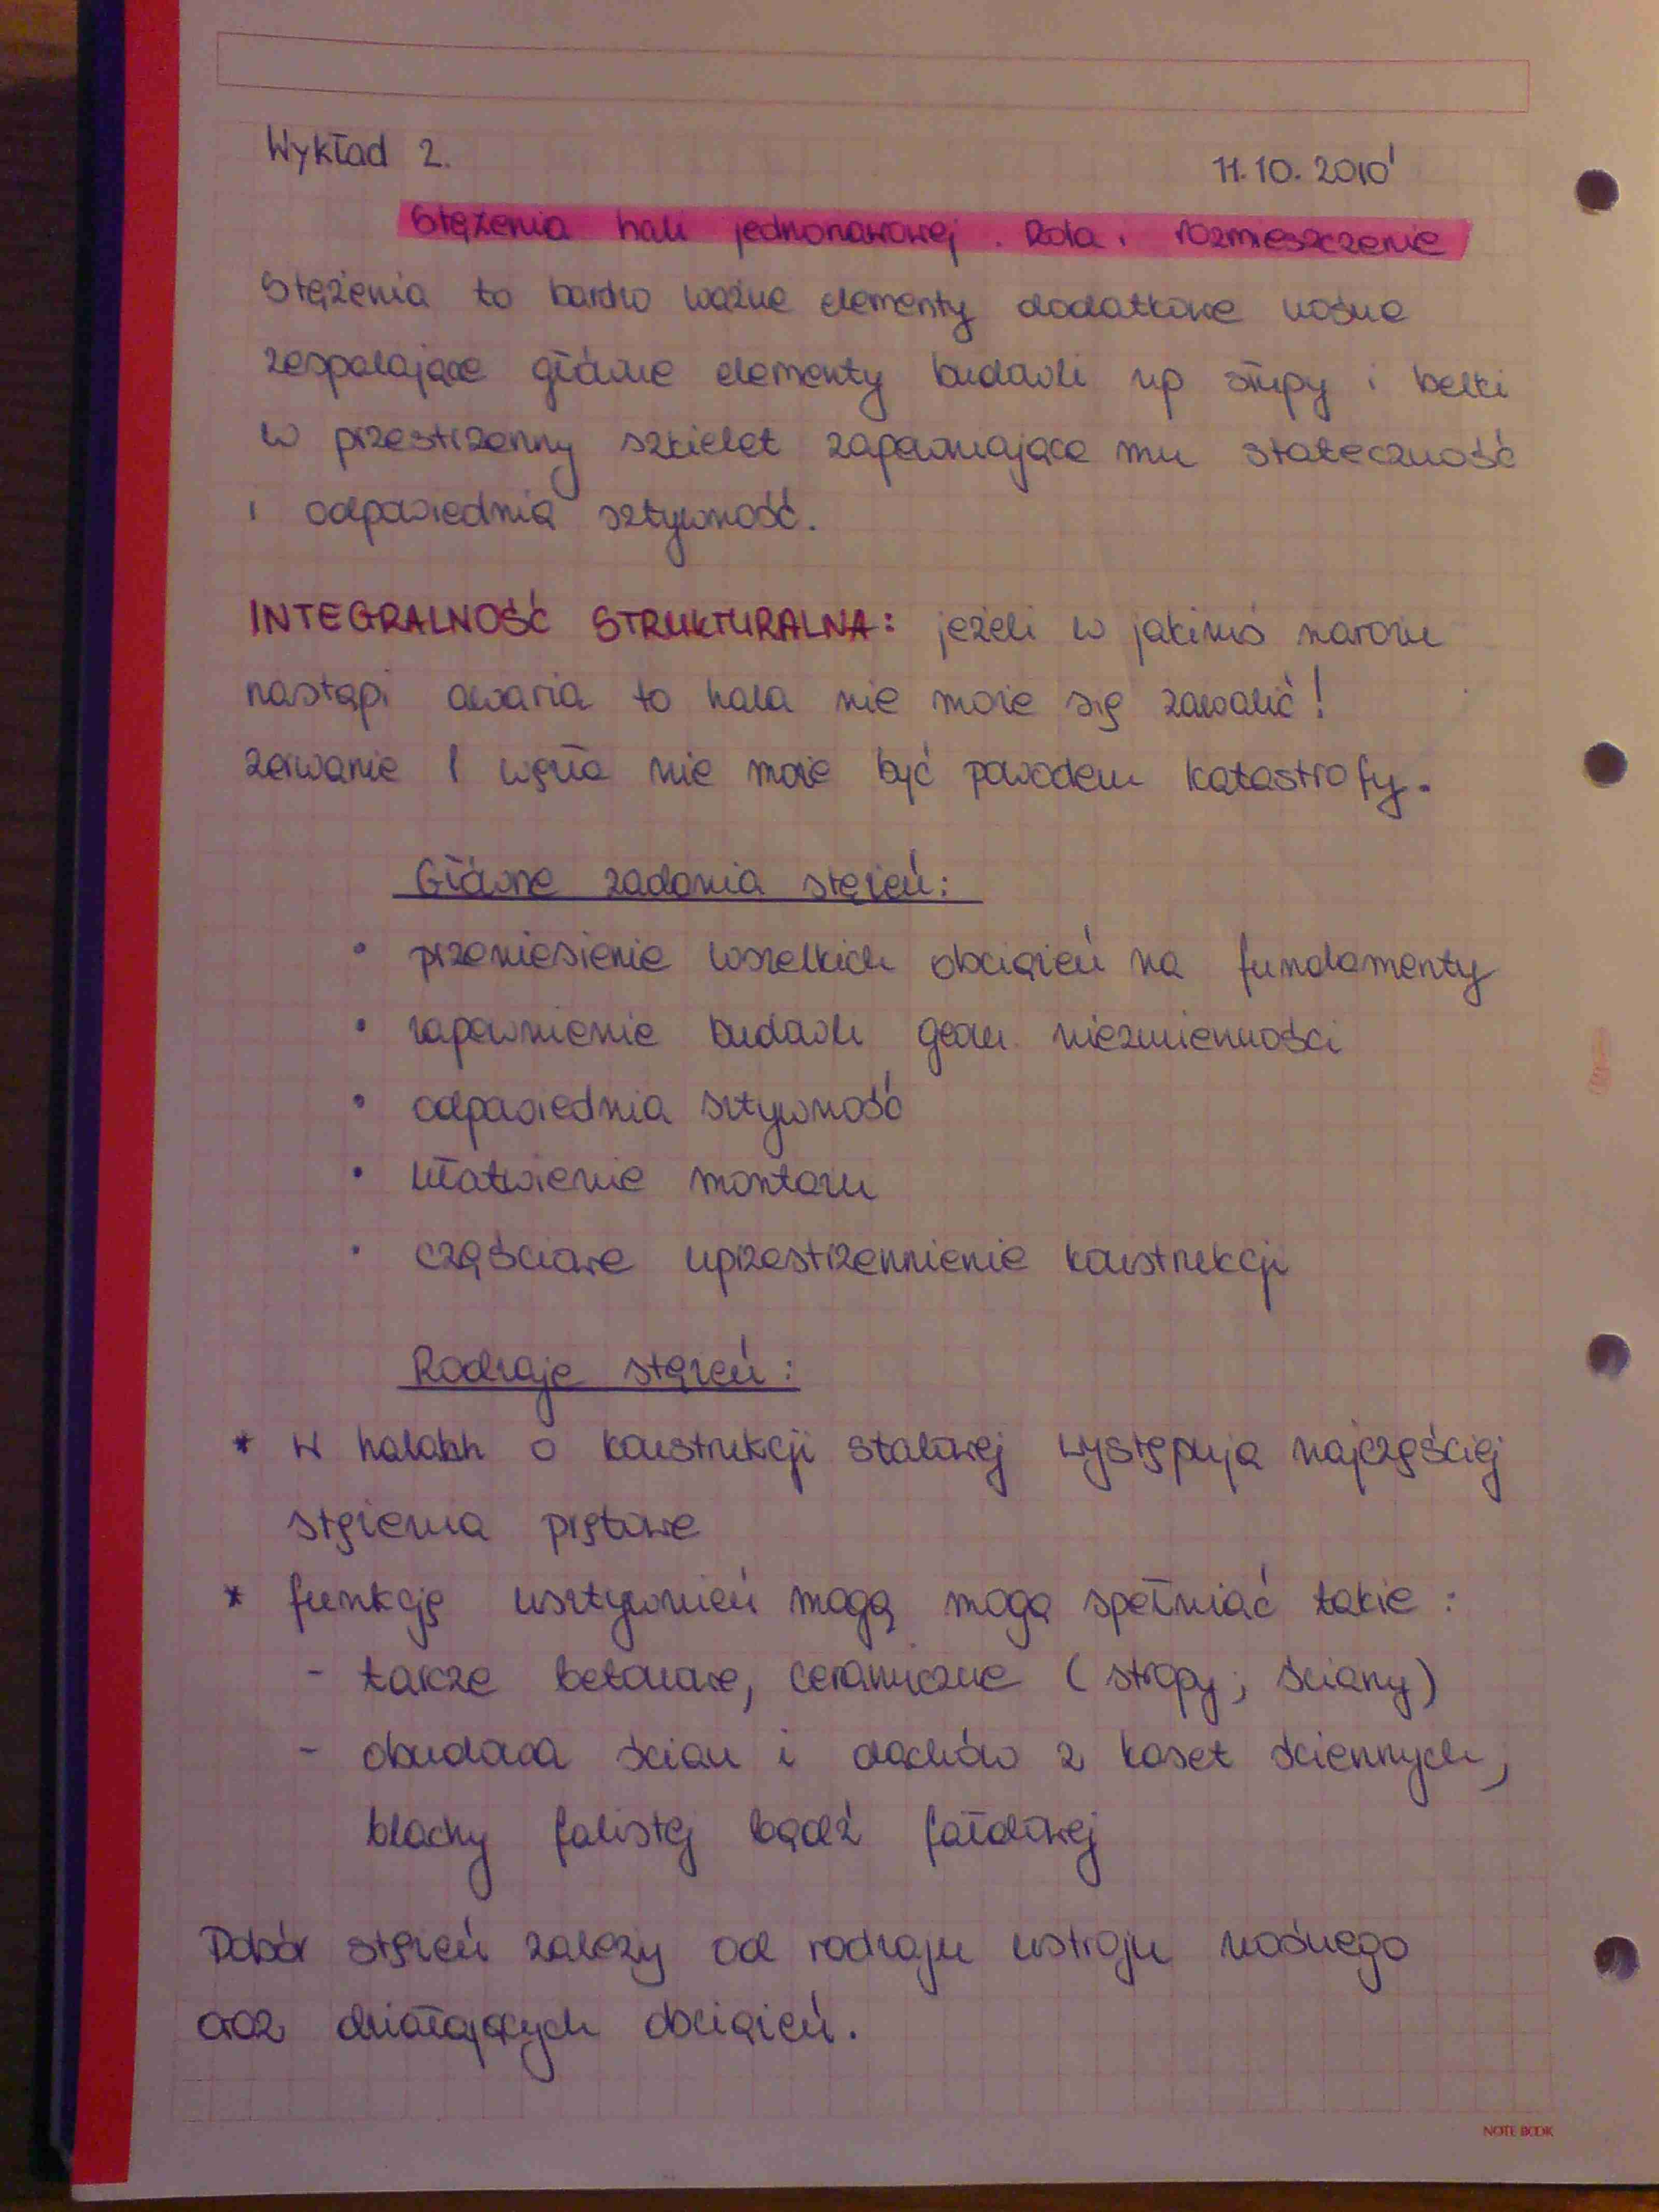 Wykład 2.
11.10.2010
Stężenia hali jednonawowej. Rola i rozmieszczenie
Stężenia to bardzo ważne elementy dodatkowe nośne
zespalające główne elementy budowli np słupy i belki
w przestrzenny szkielet zapewniające mu stateczność
i odpowiednią sztywność.
INTEGRALNOŚĆ STRUKTURALNA: jeżeli w jakimś narożu
nastąpi awaria to hala nie może się zawalić!
zerwanie 1 węzła nie może być powodem katastrofy.
Główne zadania stężeń:
• przeniesienie wszelkich obciążeń na fundamenty
• zapewnienie budowli geom. niezmienności
• odpowiednia sztywność
• ułatwienie montażu
• częściowe uprzestrzennienie konstrukcji
Rodzaje stężeń:
* w halach o konstrukcji stalowej występują najczęściej
stężenia prętowe
* funkcję usztywnień mogą mogą spełniać także:
- tarcze betonowe, ceramiczne (stropy; ściany)
- obudowa ścian i dachów z kaset ściennych,
blachy falistej bądź fałdowej
Dobór stężeń zależy od rodzaju ustroju nośnego
oraz działających obciążeń.
NOTE BOOK